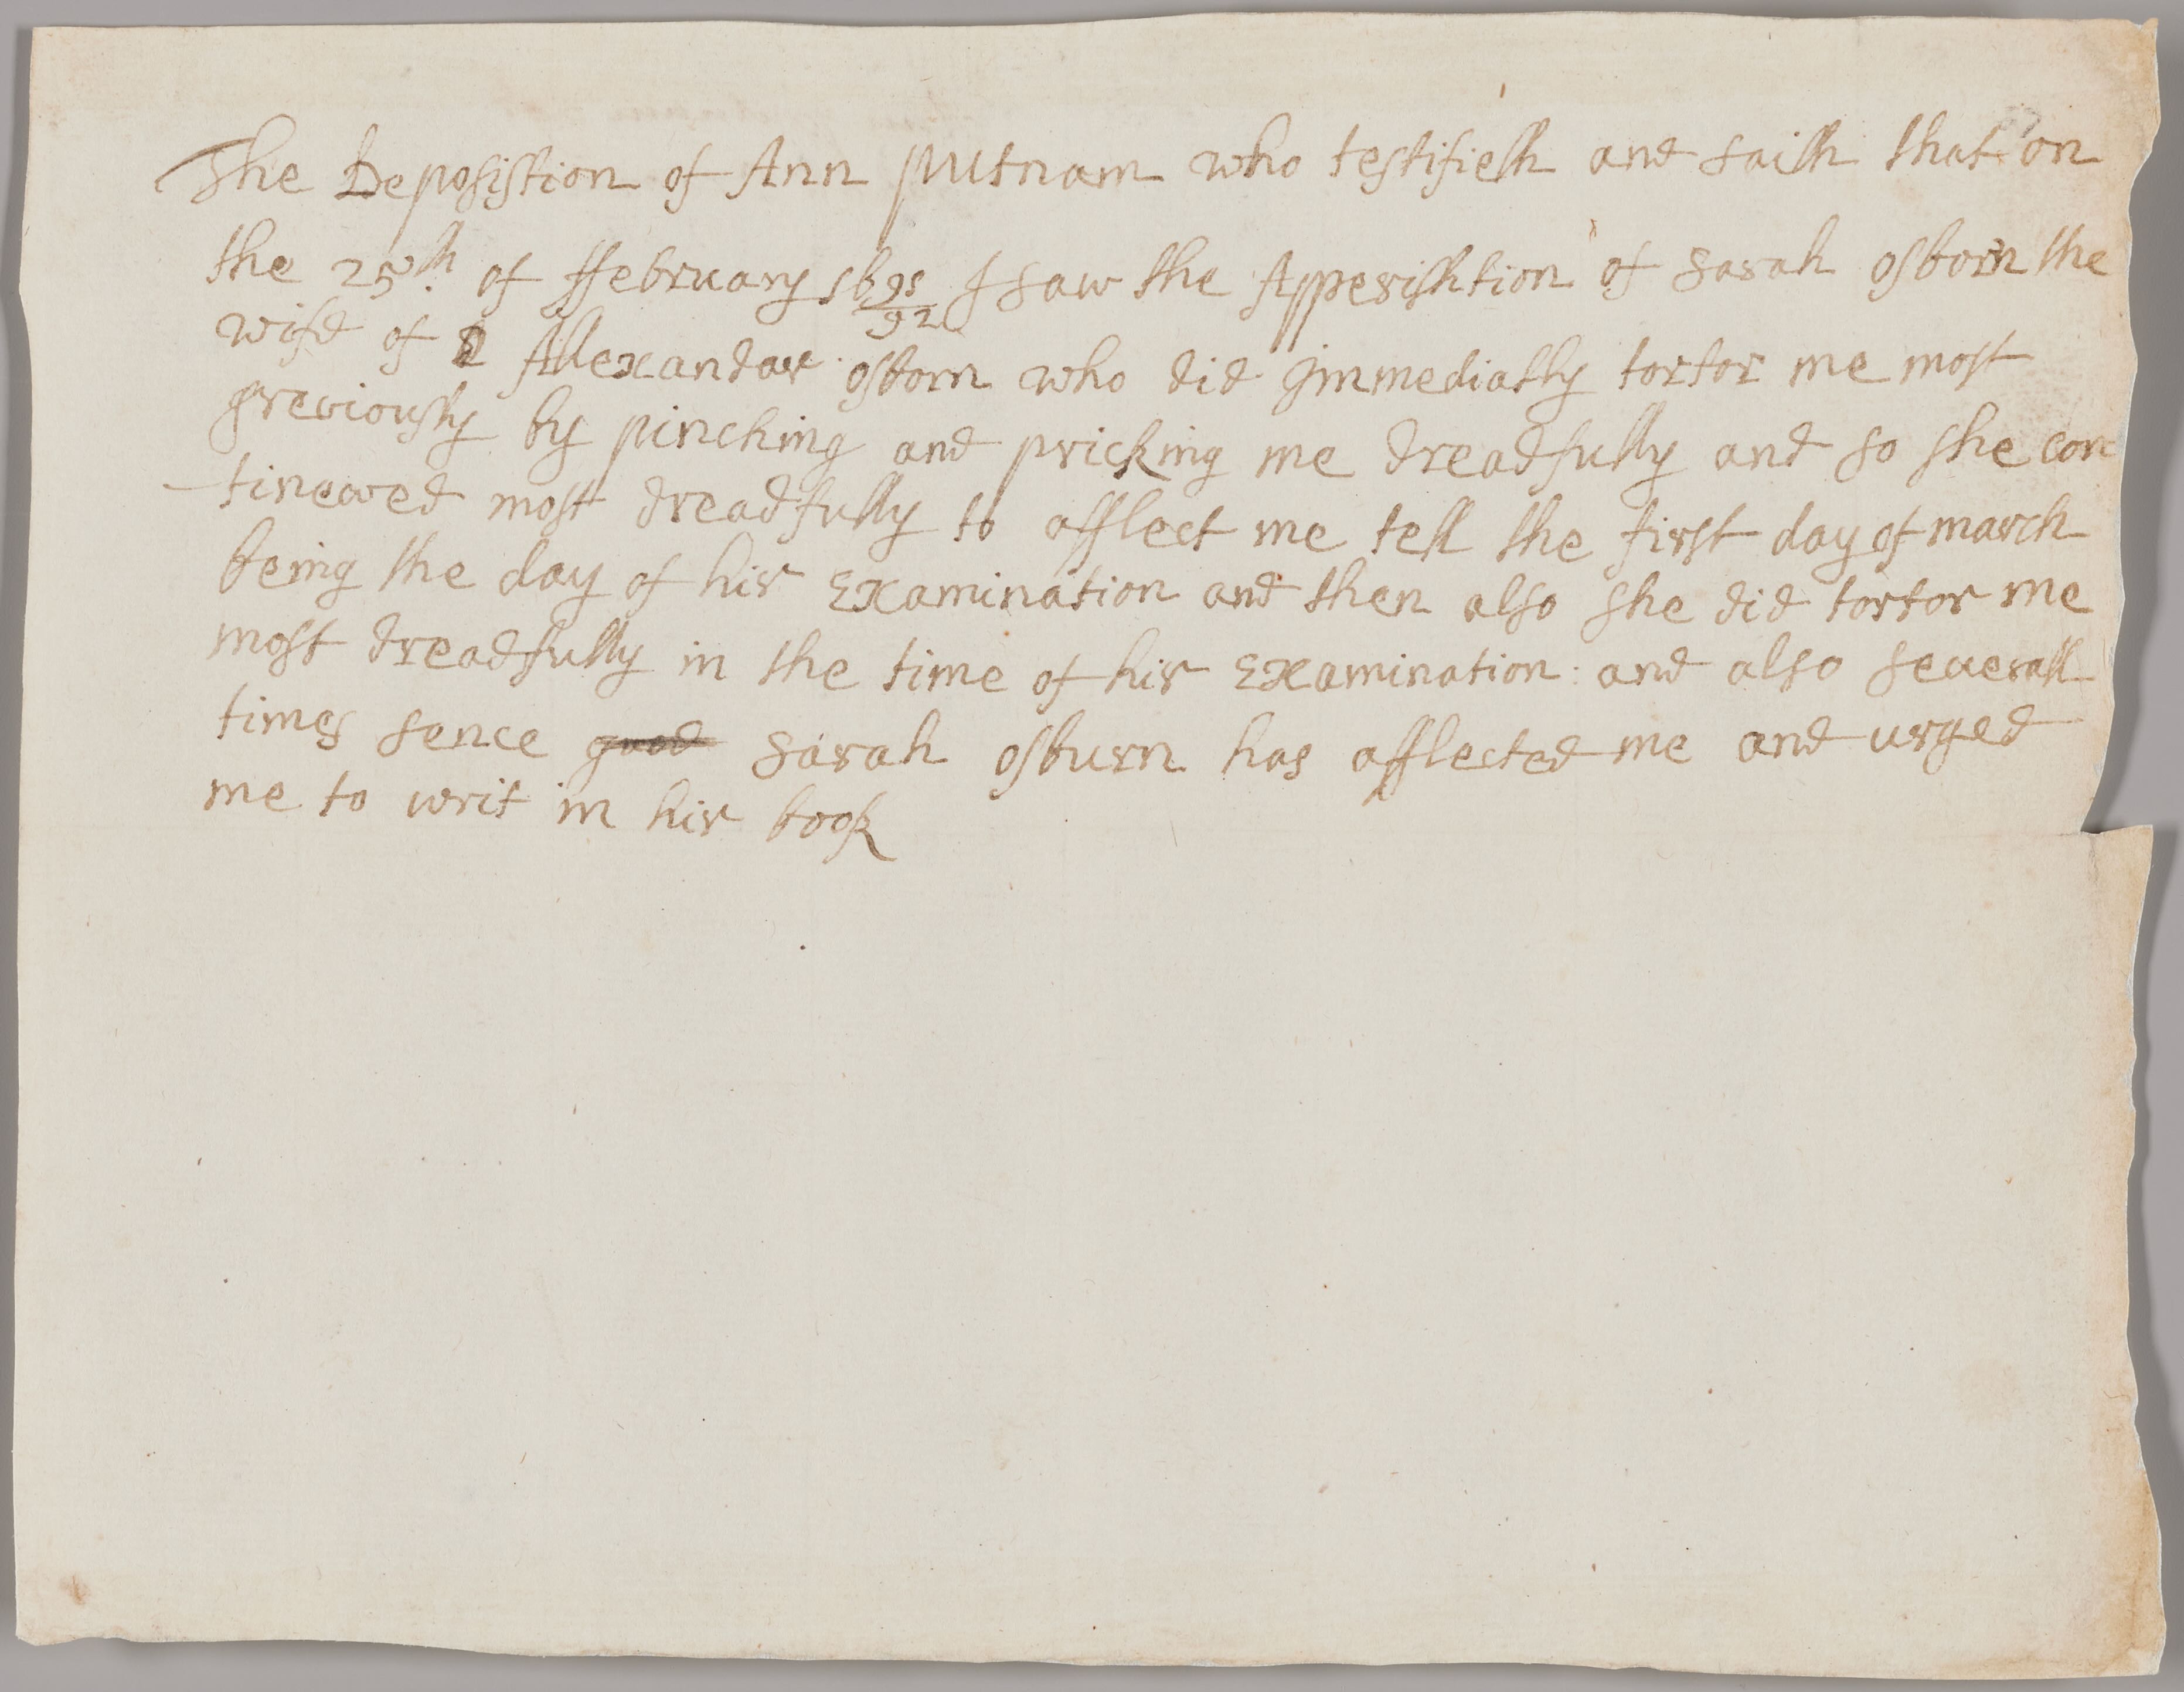 The Deposistion of Ann putnam who testifieth and saith that on
the 25th of ffebruary 1691/92 I saw the Apperishtion of sarah osborn the
wife of Allexandar osborn who did Immediatly tortor me most
greviously by pinching and pricking me dreadfully and so she con
tinewed most dreadfully to afflect me tell the first day of march
being the day of hir Examination and then also she did tortor me
most dreadfully in the time of hir Examination: and also severall
times sence good sarah osburn has afflected me and urged
me to writ in hir book